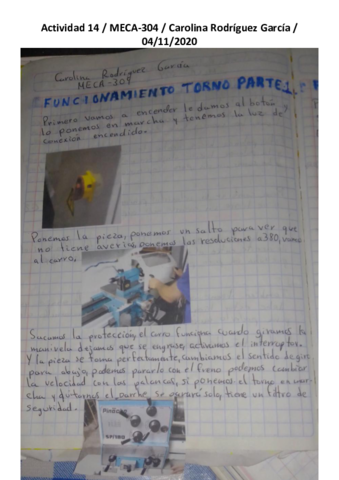 Actividad 14 / MECA-304 / Carolina Rodríguez García /
04/11/2020
Carolina Rodríguez García
MECA-304
FUNCIONAMIENTO TORNO PARTE 1.
Primero vamos a encender le damos al botón
lo ponemos en marcha y tenemos la luz de
conexión encendida.
Ponemos la pieza, ponemos un salto para ver que
no tiene avería, ponemos las resoluciones a 380, vamos
al carro.
Sacamos la protección, el carro funciona cuando giramos la
manivela dejamos que se engrase, activamos el interruptor.
Y la pieza se torna perfectamente, cambiamos el sentido de giro
para abajo, podemos pararlo con el freno podemos cambiar
la velocidad con las palancas, si ponemos el torno en mar
cha y quitamos el parche, se parará solo, tiene un filtro de
seguridad.